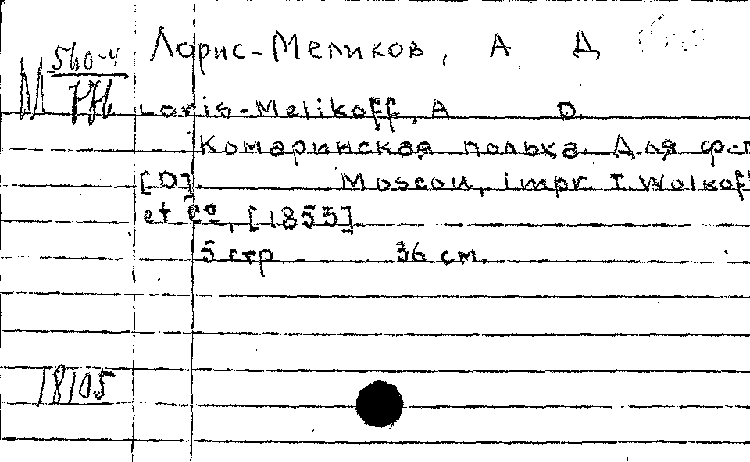 М 560-4 Лорис-Меликов, А Д
Loris-Melikoff, A D.
Комаринская полька. Для ф-п
[D]. Moscou, impr. T. Wolkoff
et Cº, [1855].
5 стр 36 см.
18105